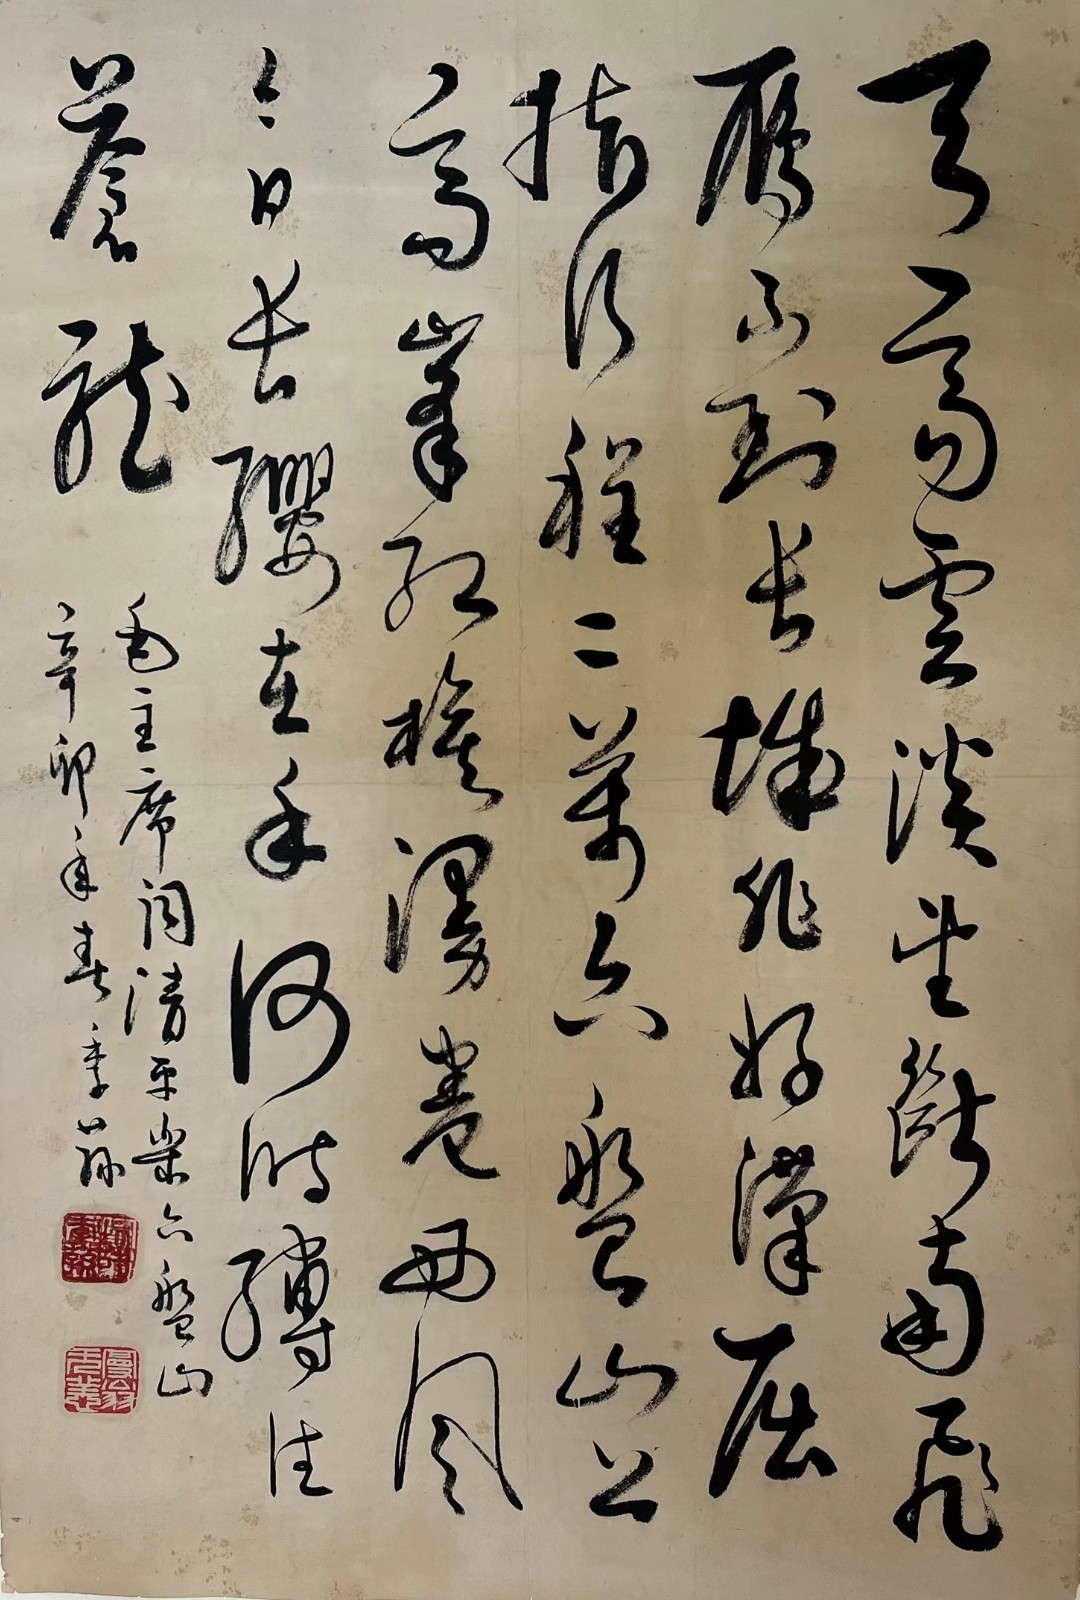 天高雲淡望斷南飛
雁不到長城非好漢屈
指行程二萬六盤山上
高峯紅旗漫卷西風
今日長纓在手何時縛住
蒼龍
毛主席词清平樂六盤山
辛卯年春季